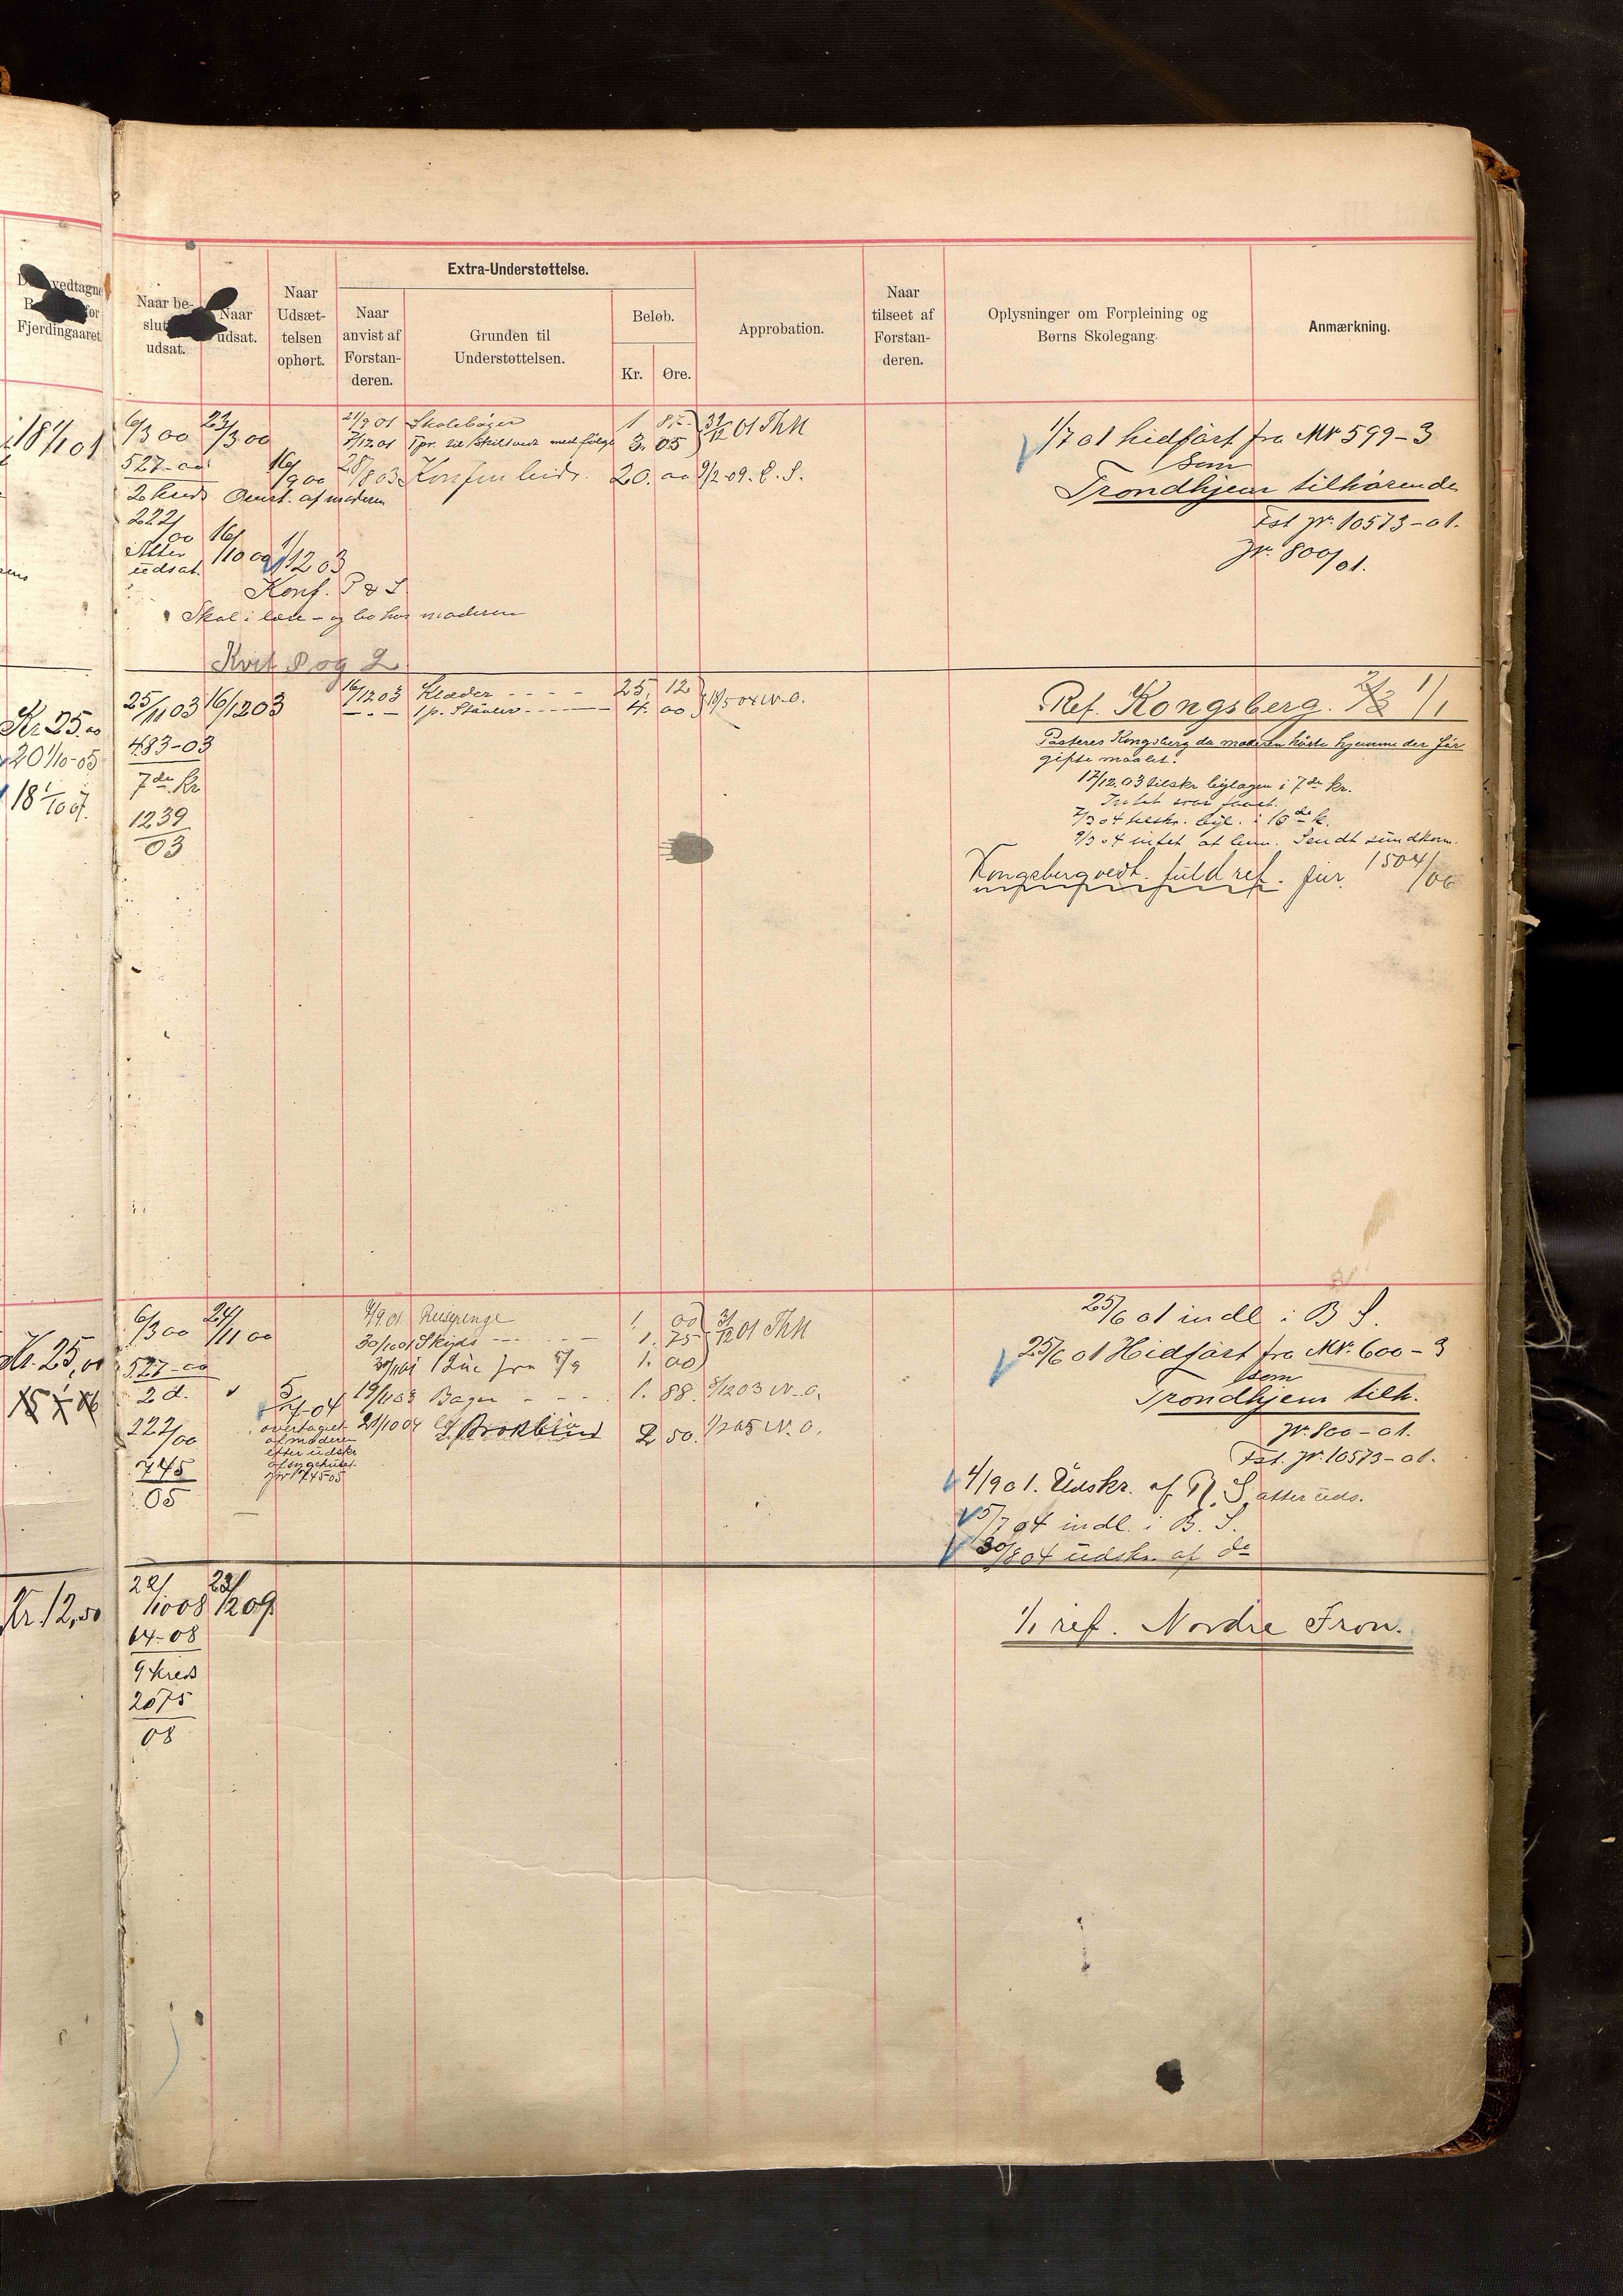 Extra-Understøttelse.
Fjerdingaaret
Naar be-
udsat.
Naar
udsat.
Naar
Udsæt-
telsen
ophørt.
Naar
anvist af
Forstan-
deren.
Grunden til
Understøttelsen.
Beløb.
Kr.
Øre.
Approbation.
Naar
tilseet af
Forstan-
deren.
Oplysninger om Forpleining og
Børns Skolegang.
Anmærkning.
18 1/1 01
6/3 00 23/3 00
527-00
16/9 00
2 kreds Omst. af moderen
222/00
Atter udsat. 16/10 00 1/12 03
Konf. P & S
Skal i lære - og bo hos moderen
Kvit P og L
21/9 01 Skolebøger 1
7/12 01 1 pr. 3. 05 31/12 01 ThM
28/8 03 20. 00 9/2 09.
1/7 01 hidført fra Mk 599-3
som
Trondhjem tilhørende
Fst jr. 10573-01.
jr. 800/01.
Kr. 25.00
20 1/10-05
18 1/10 07.
25/11 03 16/12 03
483-03
7de Kr
1239
03
16/12 03 Klæder - - - - 25. 12
- - - 1 p. Støvler - - - - 4. 00
Ref. Kongsberg. 1/1
Posteres Kongsberg da moderen hørte hjemme der før
giftemaalet.
17/12.03 tilskr. i 7de kr.
7/3 04 tilskr. i 10de k.
9/3 04 intet at
Kongsberg vedt. fuld ref. jur. 1504/06
Kr. 25,00
6/3 00 24/11 00
527-00
2 d.
222/00
745
05
overtaget
af moderen
efter udskr.
jr 745-05
4/9 01 Reisepenge 1. 00
30/10 01 Skijds - - - 1. 75 31/12 01 ThM
1 Lue fra 5/9 1. 00
19/11 03 Bøger - - - 1. 88. 8/12 03 W. O.
21/10 04 Brokbind 2 50. 1/2 05 W. O.
25/6 01 indl i B S.
25/6 01 Hidført fra Mk. 600-3
som
Trondhjem tilh.
jr. 800-01.
Fst. jr. 10573-01.
4/9 01. Udskr. af B. S. atter uds.
5/7 04 indl. i B. S.
30/8 04 udskr. af do
Kr. 12,50
22/10 08 23/12 09
64-08
9 Kreds
2075
08
1/1 ref. Nordre Fron.